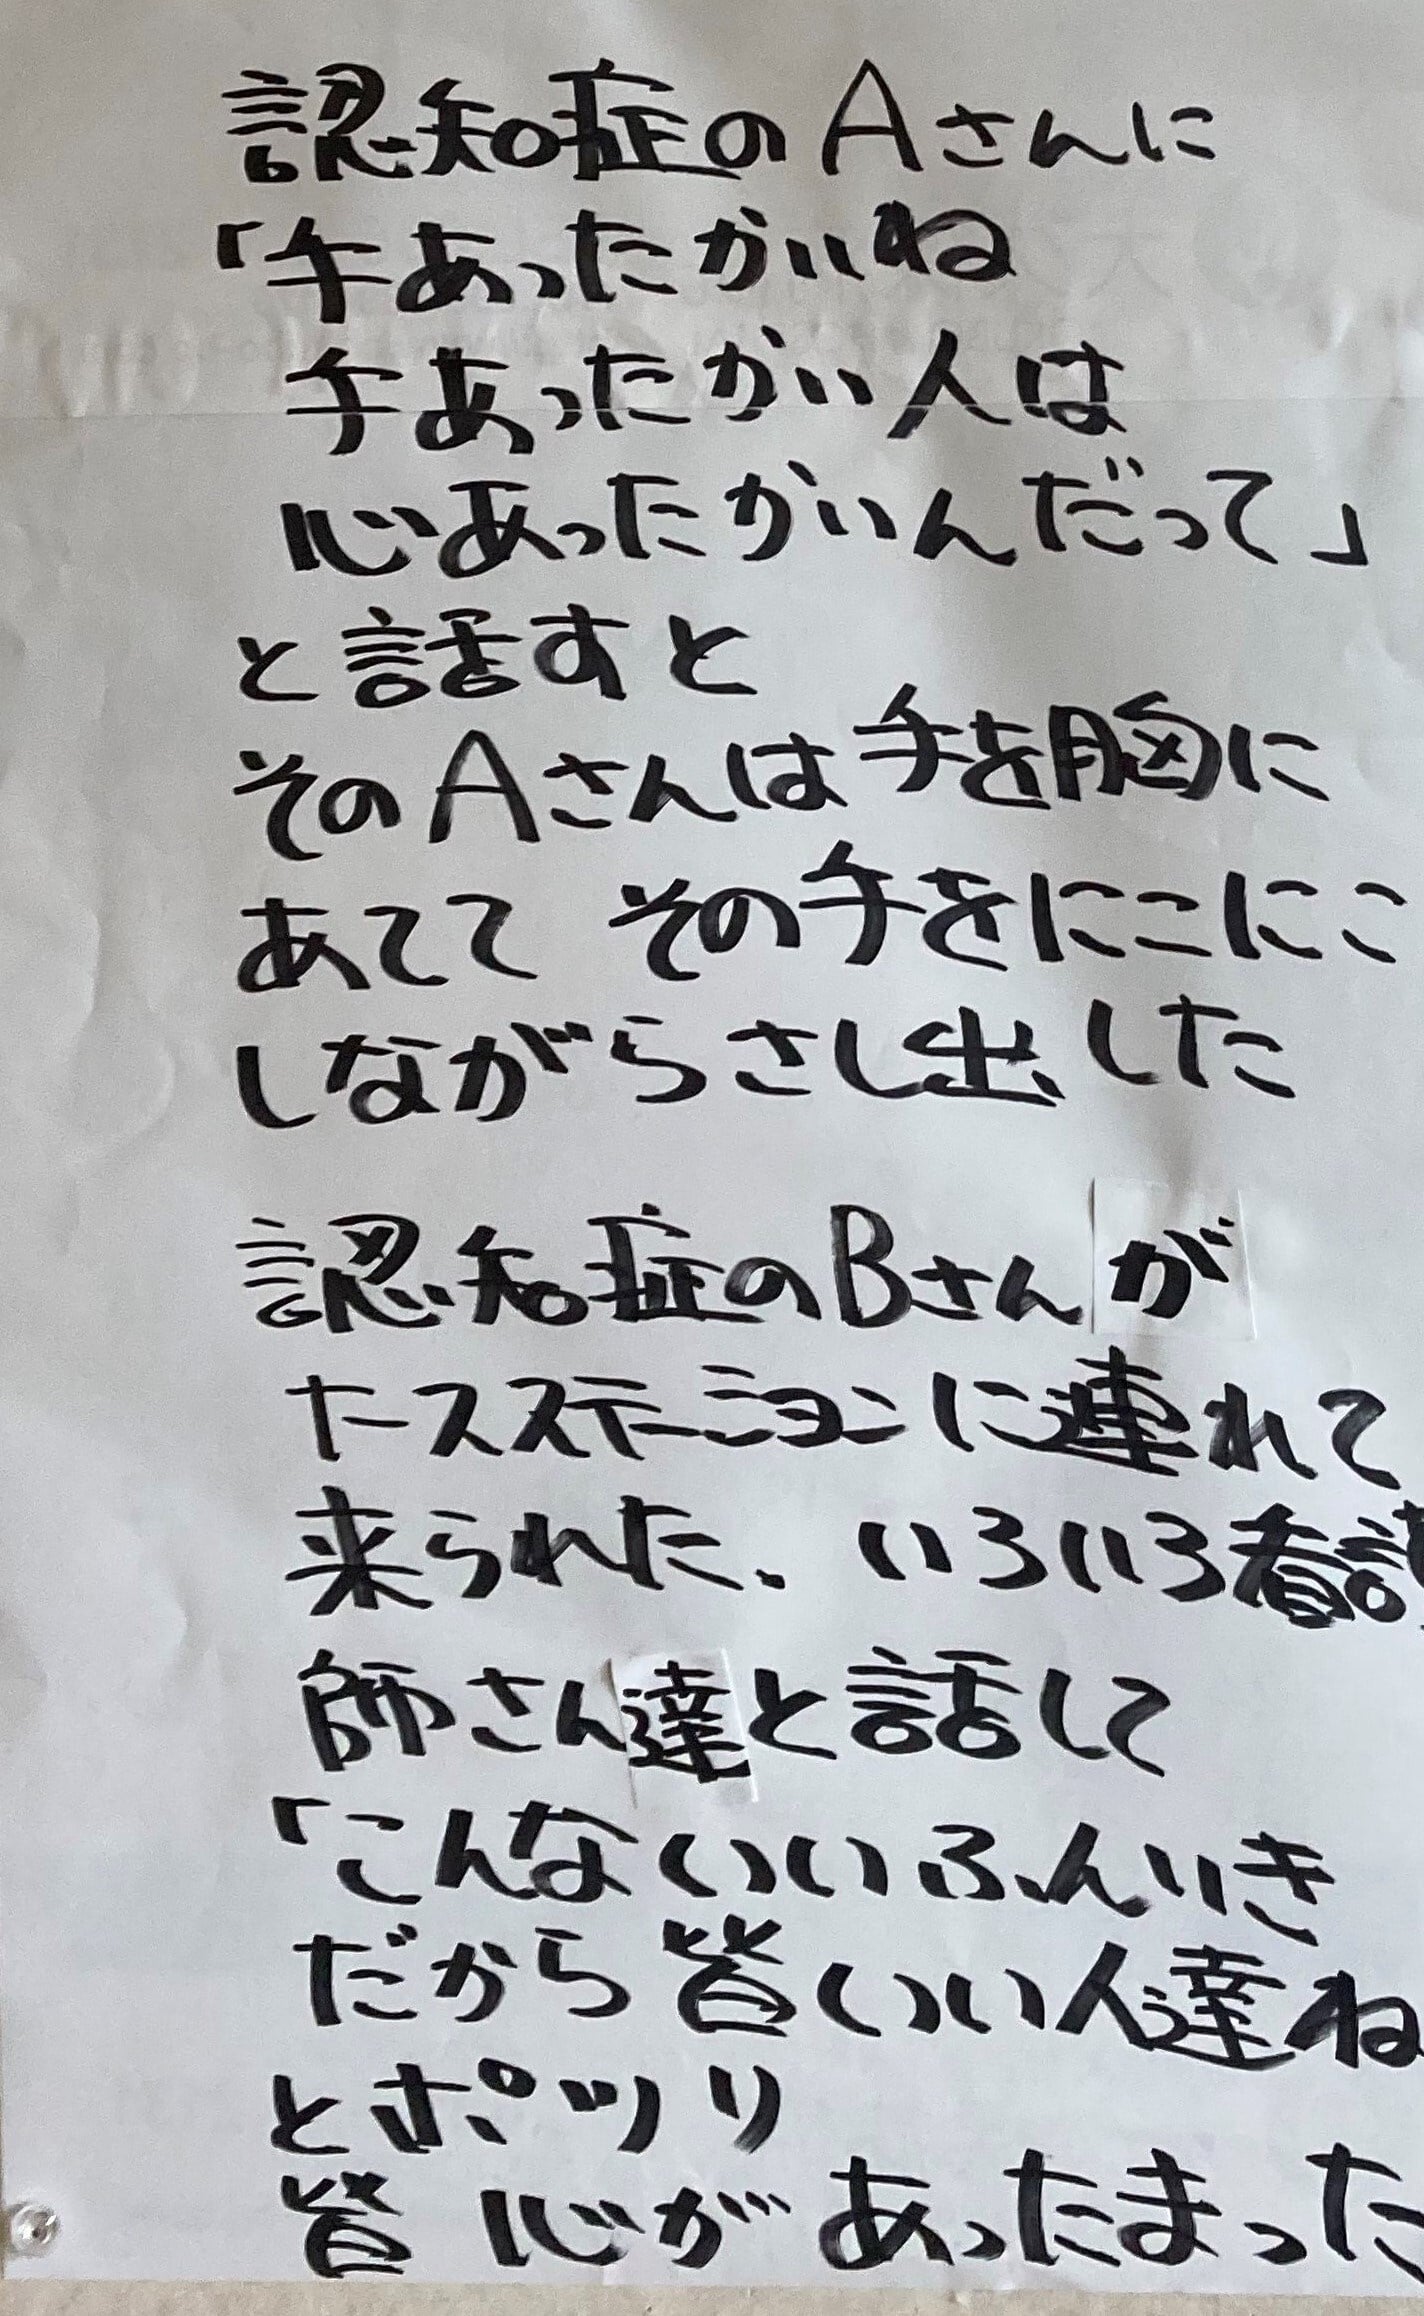 認知症のAさんに
「手あったかいね
手あったかい人は
心あったかいんだって」
と話すと
そのAさんは手を胸に
あてて その手をにこにこ
しながらさし出した
認知症のBさんが
ナースステーションに連れて
来られた、いろいろ看護
師さん達と話して
「こんないいふんいき
だから皆いい人達ね
とポツリ
皆 心があったまった